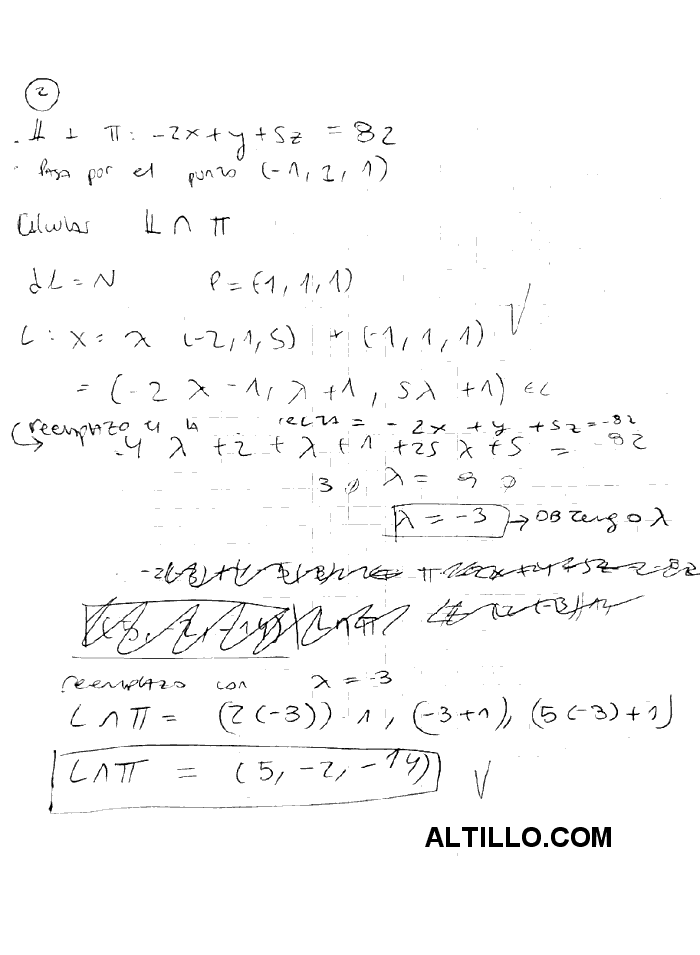 2
. L ⊥ π: -2x+y+5z = 82
. Pasa por el punto (-1, 1, 1)
Calcular L ∩ π
dL = N P = (-1, 1, 1)
L: X = λ (-2, 1, 5) + (-1, 1, 1) √
= (-2λ-1, λ+1, 5λ+1) ∈ L
reemplazo recta = -2x + y + 5z = -82
-4λ + 2 + λ + 1 + 25λ + 5 = -82
30 λ = 90
λ = -3 → OBtengo λ
reemplazo con λ = -3
L ∩ π = (2(-3)) 1, (-3+1), (5(-3)+1)
L ∩ π = (5, -2, -14) √
ALTILLO.COM